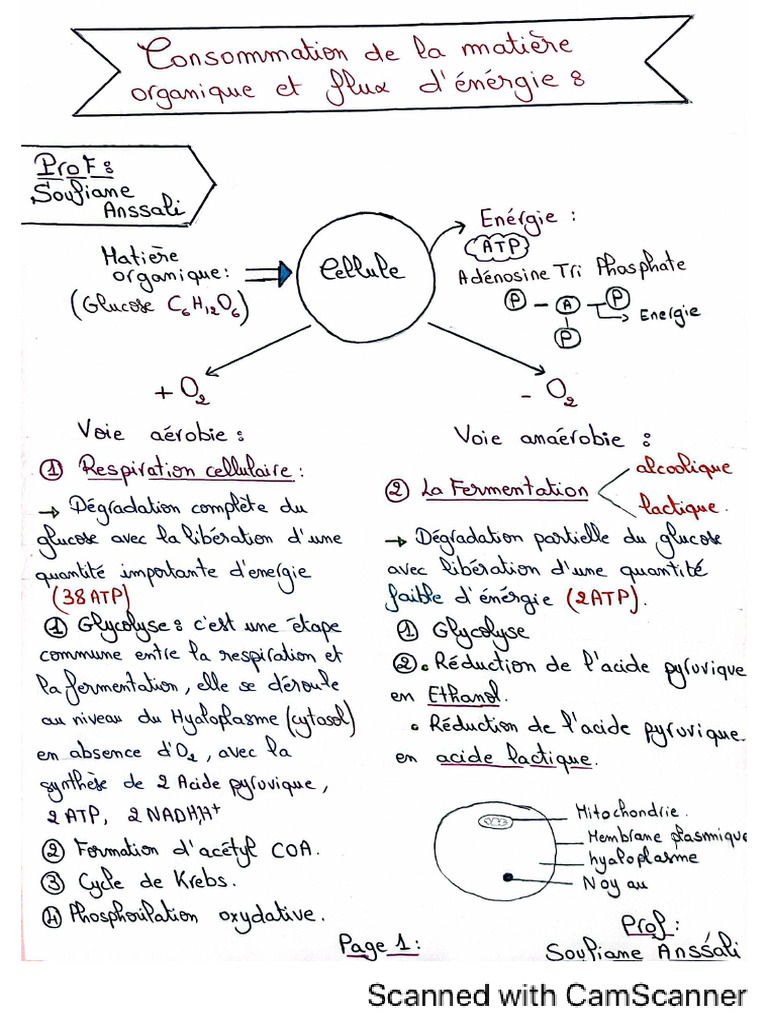 Consommation de la matière
organique et flux d'énérgie :
Prof :
Soufiane
Anssali
Matière
organique :
(Glucose C6H12O6)
Cellule
Enérgie :
ATP
Adénosine Tri Phosphate
P - A - P
Energie
P
+ O2
- O2
Voie aérobie :
① Respiration cellulaire :
→ Dégradation complète du
glucose avec la libération d'une
quantité importante d'energie
(38 ATP)
① Glycolyse : c'est une étape
commune entre la respiration et
la fermentation, elle se déroule
au niveau du Hyaloplasme (cytosol)
en absence d'O2, avec la
synthèse de 2 Acide pyruvique,
2 ATP, 2 NADH,H+
② Formation d'acétyl COA.
③ Cycle de Krebs.
④ Phosphorilation oxydative.
Voie anaérobie :
② La Fermentation
alcoolique
lactique.
→ Dégradation partielle du glucose
avec libération d'une quantité
faible d'énérgie (2ATP).
① Glycolyse
②. Réduction de l'acide pyruvique
en Ethanol.
• Réduction de l'acide pyruvique
en acide lactique.
Mitochondrie.
Membrane plasmique
hyaloplasme
Noyau
Page 1 :
Prof :
Soufiane Anssali
Scanned with CamScanner